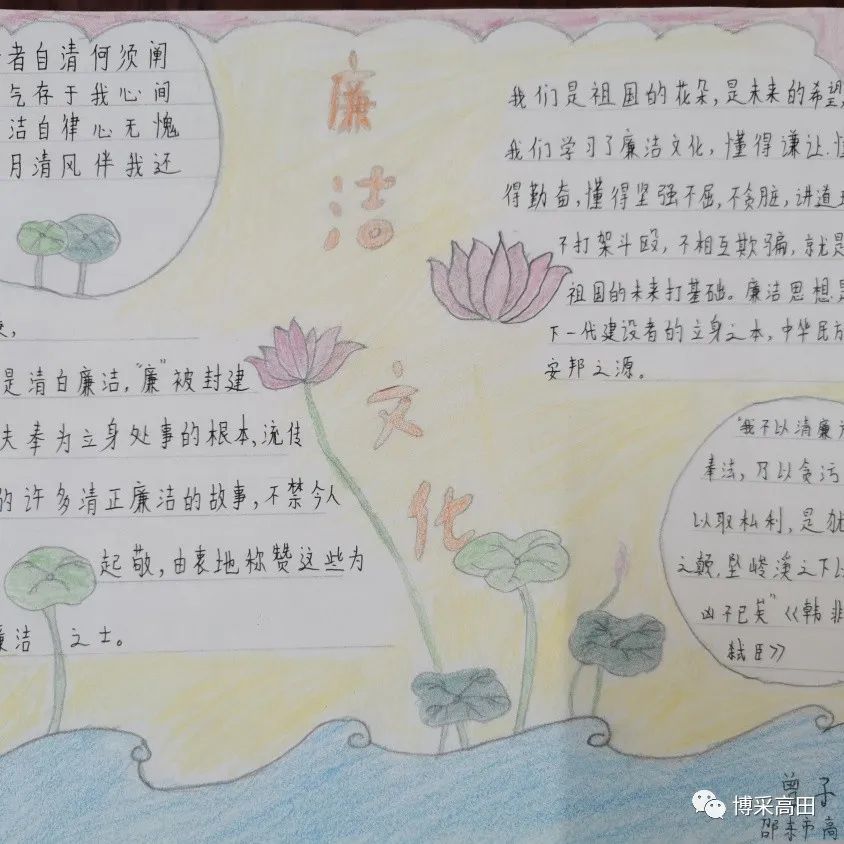 者自清何须阐
气存于我心间
洁自律心无愧
月清风伴我还
廉
洁
文
化
我们是祖国的花朵,是未来的希望,
我们学习了廉洁文化,懂得谦让,
得勤奋,懂得坚强不屈,不贪脏,讲道
不打架斗殴,不相互欺骗,就是
祖国的未来打基础。廉洁思想是
下一代建设者的立身之本,中华民
安邦之源。
是清白廉洁,“廉”被封建
夫奉为立身处事的根本,流传
的许多清正廉洁的故事,不禁今人
起敬,由衷地称赞这些为
廉洁 之士。
“我不以清廉
奉法,乃以贪污
以取私利,是犹
之颠,坠峻溪之下
凶不已矣”《韩非
弑臣》
曾子
邵东市高
博采高田